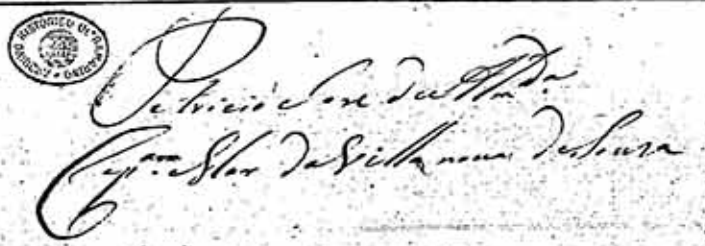 ARQUIVO HISTORICO ULTRAMARINO
Patricio Jose de Almda
Capam Mor da Villa nova de Souza